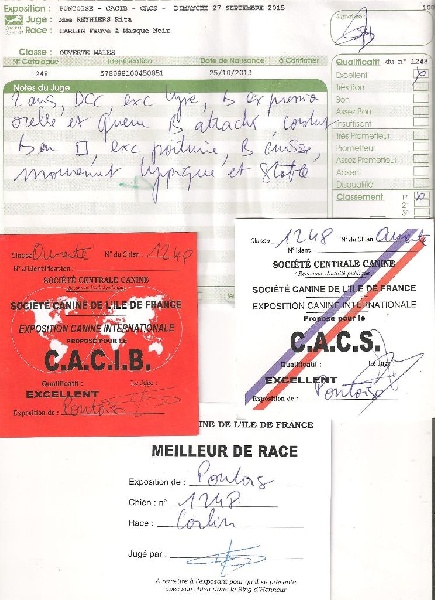 Exposition : PONTOISE - CACIB - CACS - DIMANCHE 27 SEPTEMBRE 2015
Juge : Mme REYNIERS Rita
Race : CARLIN Fauve à Masque Noir
Classe : OUVERTE MALES
N° Catalogue Identification Date de Naissance à Confirmer
Notes du Juge
2 ans, DCC, exc type, B expression
oreille et queue B attaché, construit
Bon □, exc poitrine, B cuisse,
mouvement typique et stable
Qualificatif du n° 1248
Excellent
Très Bon
Bon
Assez Bon
Insuffisant
Très Prometteur
Prometteur
Assez Prometteur
Absent
Disqualifié
Classement 1
2
3
Classe Ouverte N° du Chien 1248
N° d'Identification
SOCIÉTÉ CENTRALE CANINE
SOCIÉTÉ CANINE DE L'ILE DE FRANCE
EXPOSITION CANINE INTERNATIONALE
PROPOSÉ POUR LE
C.A.C.I.B.
Qualificatif : Le Juge :
EXCELLENT
Exposition de : Pontoise
Classe 1248 N° du Chien Ouverte
SOCIÉTÉ CENTRALE CANINE
SOCIÉTÉ CANINE DE L'ILE DE FRANCE
EXPOSITION CANINE INTERNATIONALE
Proposé pour le
C.A.C.S.
Qualificatif : Le Juge
EXCELLENT
Exposition de : Pontoise
CANINE DE L'ILE DE FRANCE
MEILLEUR DE RACE
Exposition de : Pontois
Chien : n° 1248
Race : Carlin
Jugé par :
A remettre à l'exposant pour qu'il se présente
avec son chien dans le Ring d'Honneur